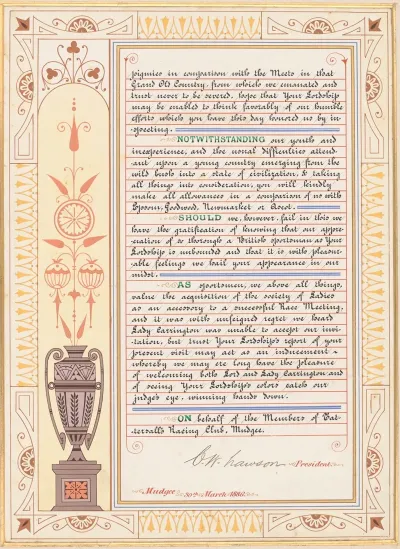 pigmies in comparison with the Meets in that
Grand Old Country, from which we emanated and
trust never to be severed, hope that Your Lordship
may be enabled to think favorably of our humble
efforts which you have this day honored us by in-
specting.
NOTWITHSTANDING our youth and
inexperience, and the usual difficulties attend-
ant upon a young country emerging from the
wild bush into a state of civilization, & taking
all things into consideration, you will kindly
make all allowances in a comparison of us with
Epsom, Goodwood, Newmarket or Ascot.
SHOULD we, however, fail in this we
have the gratification of knowing that our appre-
ciation of so thorough a British sportsman as Your
Lordship is unbounded and that it is with pleasur-
able feelings we hail your appearance in our
midst.
AS sportsmen, we above all things,
value the acquisition of the society of Ladies
as an accessory to a successful Race Meeting,
and it was with unfeigned regret we heard
Lady Carrington was unable to accept our invi-
tation, but trust Your Lordship's report of your
present visit may act as an inducement
whereby we may ere long have the pleasure
of welcoming both Lord and Lady Carrington and
of seeing Your Lordship's colors catch our
judge's eye, winning hands down.
ON behalf of the Members of Tat-
tersall's Racing Club, Mudgee.
Lawson President
Mudgee 30th March 1886.